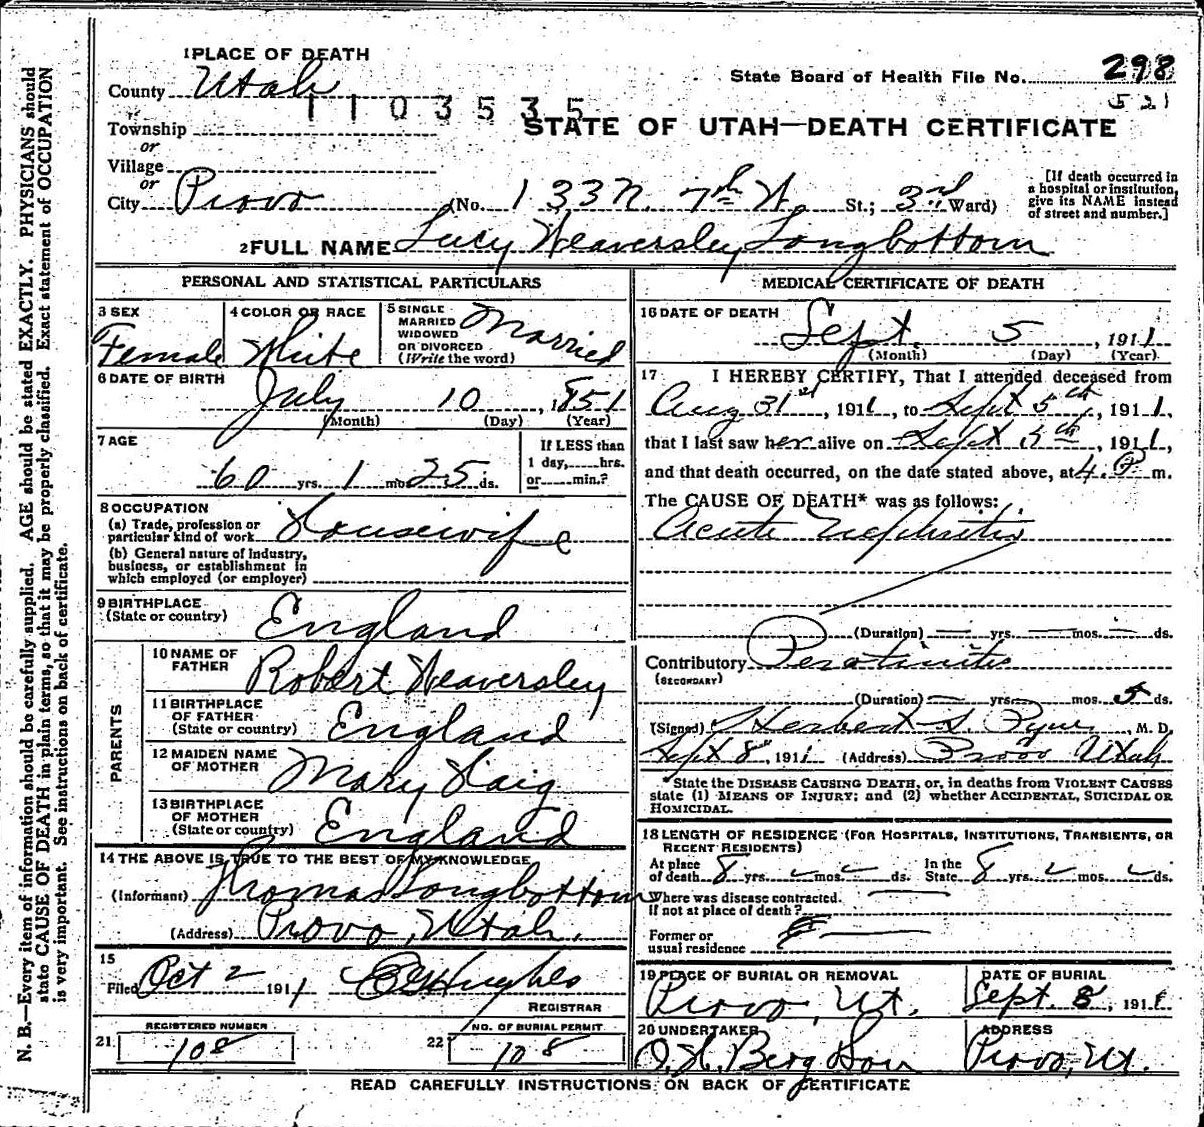 N. B.—Every item of information should be carefully supplied. AGE should be stated EXACTLY. PHYSICIANS should
state CAUSE OF DEATH in plain terms, so that it may be properly classified. Exact statement of OCCUPATION
is very important. See instructions on back of certificate.
1 PLACE OF DEATH
State Board of Health File No. 298
County Utah
1103535
521
Township
STATE OF UTAH—DEATH CERTIFICATE
or
Village
or
City Provo (No. 133 N. 7th W. St.; 3rd Ward)
[If death occurred in
a hospital or institution,
give its NAME instead
of street and number.]
2 FULL NAME Lucy Weaversley Longbottom
PERSONAL AND STATISTICAL PARTICULARS
3 SEX
Female
4 COLOR OR RACE
White
5 SINGLE
MARRIED
WIDOWED
OR DIVORCED
(Write the word)
Married
6 DATE OF BIRTH
July 10, 1851
(Month) (Day) (Year)
7 AGE
60 yrs. 1 mo 25 ds.
If LESS than
1 day,....hrs.
or....min.?
8 OCCUPATION
(a) Trade, profession or
particular kind of work Housewife
(b) General nature of industry,
business, or establishment in
which employed (or employer)
9 BIRTHPLACE
(State or country) England
PARENTS
10 NAME OF
FATHER Robert Weaversley
11 BIRTHPLACE
OF FATHER
(State or country) England
12 MAIDEN NAME
OF MOTHER Mary Haig
13 BIRTHPLACE
OF MOTHER
(State or country) England
14 THE ABOVE IS TRUE TO THE BEST OF MY KNOWLEDGE
(Informant) Thomas Longbottom
(Address) Provo, Utah.
15
Filed Oct 2 1911 Hughes
REGISTRAR
21 REGISTERED NUMBER
108
22 NO. OF BURIAL PERMIT
108
MEDICAL CERTIFICATE OF DEATH
16 DATE OF DEATH
Sept. 5, 1911
(Month) (Day) (Year)
17 I HEREBY CERTIFY, That I attended deceased from
Aug 31st, 1911, to Sept 5th, 1911,
that I last saw her alive on Sept 5th, 1911,
and that death occurred, on the date stated above, at 4 P m.
The CAUSE OF DEATH* was as follows:
Acute Nephritis
(Duration) — yrs. — mos. — ds.
Contributory Peratinitis
(SECONDARY)
(Duration) — yrs. — mos. 5 ds.
(Signed) Herbert S. Pyne, M. D.
Sept 8, 1911 (Address) Provo Utah
*State the DISEASE CAUSING DEATH, or, in deaths from VIOLENT CAUSES
state (1) MEANS OF INJURY; and (2) whether ACCIDENTAL, SUICIDAL OR
HOMICIDAL.
18 LENGTH OF RESIDENCE (FOR HOSPITALS, INSTITUTIONS, TRANSIENTS, OR
RECENT RESIDENTS)
At place
of death 8 yrs. mos. ds.
In the
State 8 yrs. mos. ds.
Where was disease contracted.
If not at place of death?
Former or
usual residence
19 PLACE OF BURIAL OR REMOVAL
Provo, Ut.
DATE OF BURIAL
Sept. 8, 1911
20 UNDERTAKER
O. H. Berg Son
ADDRESS
Provo, Ut.
READ CAREFULLY INSTRUCTIONS ON BACK OF CERTIFICATE